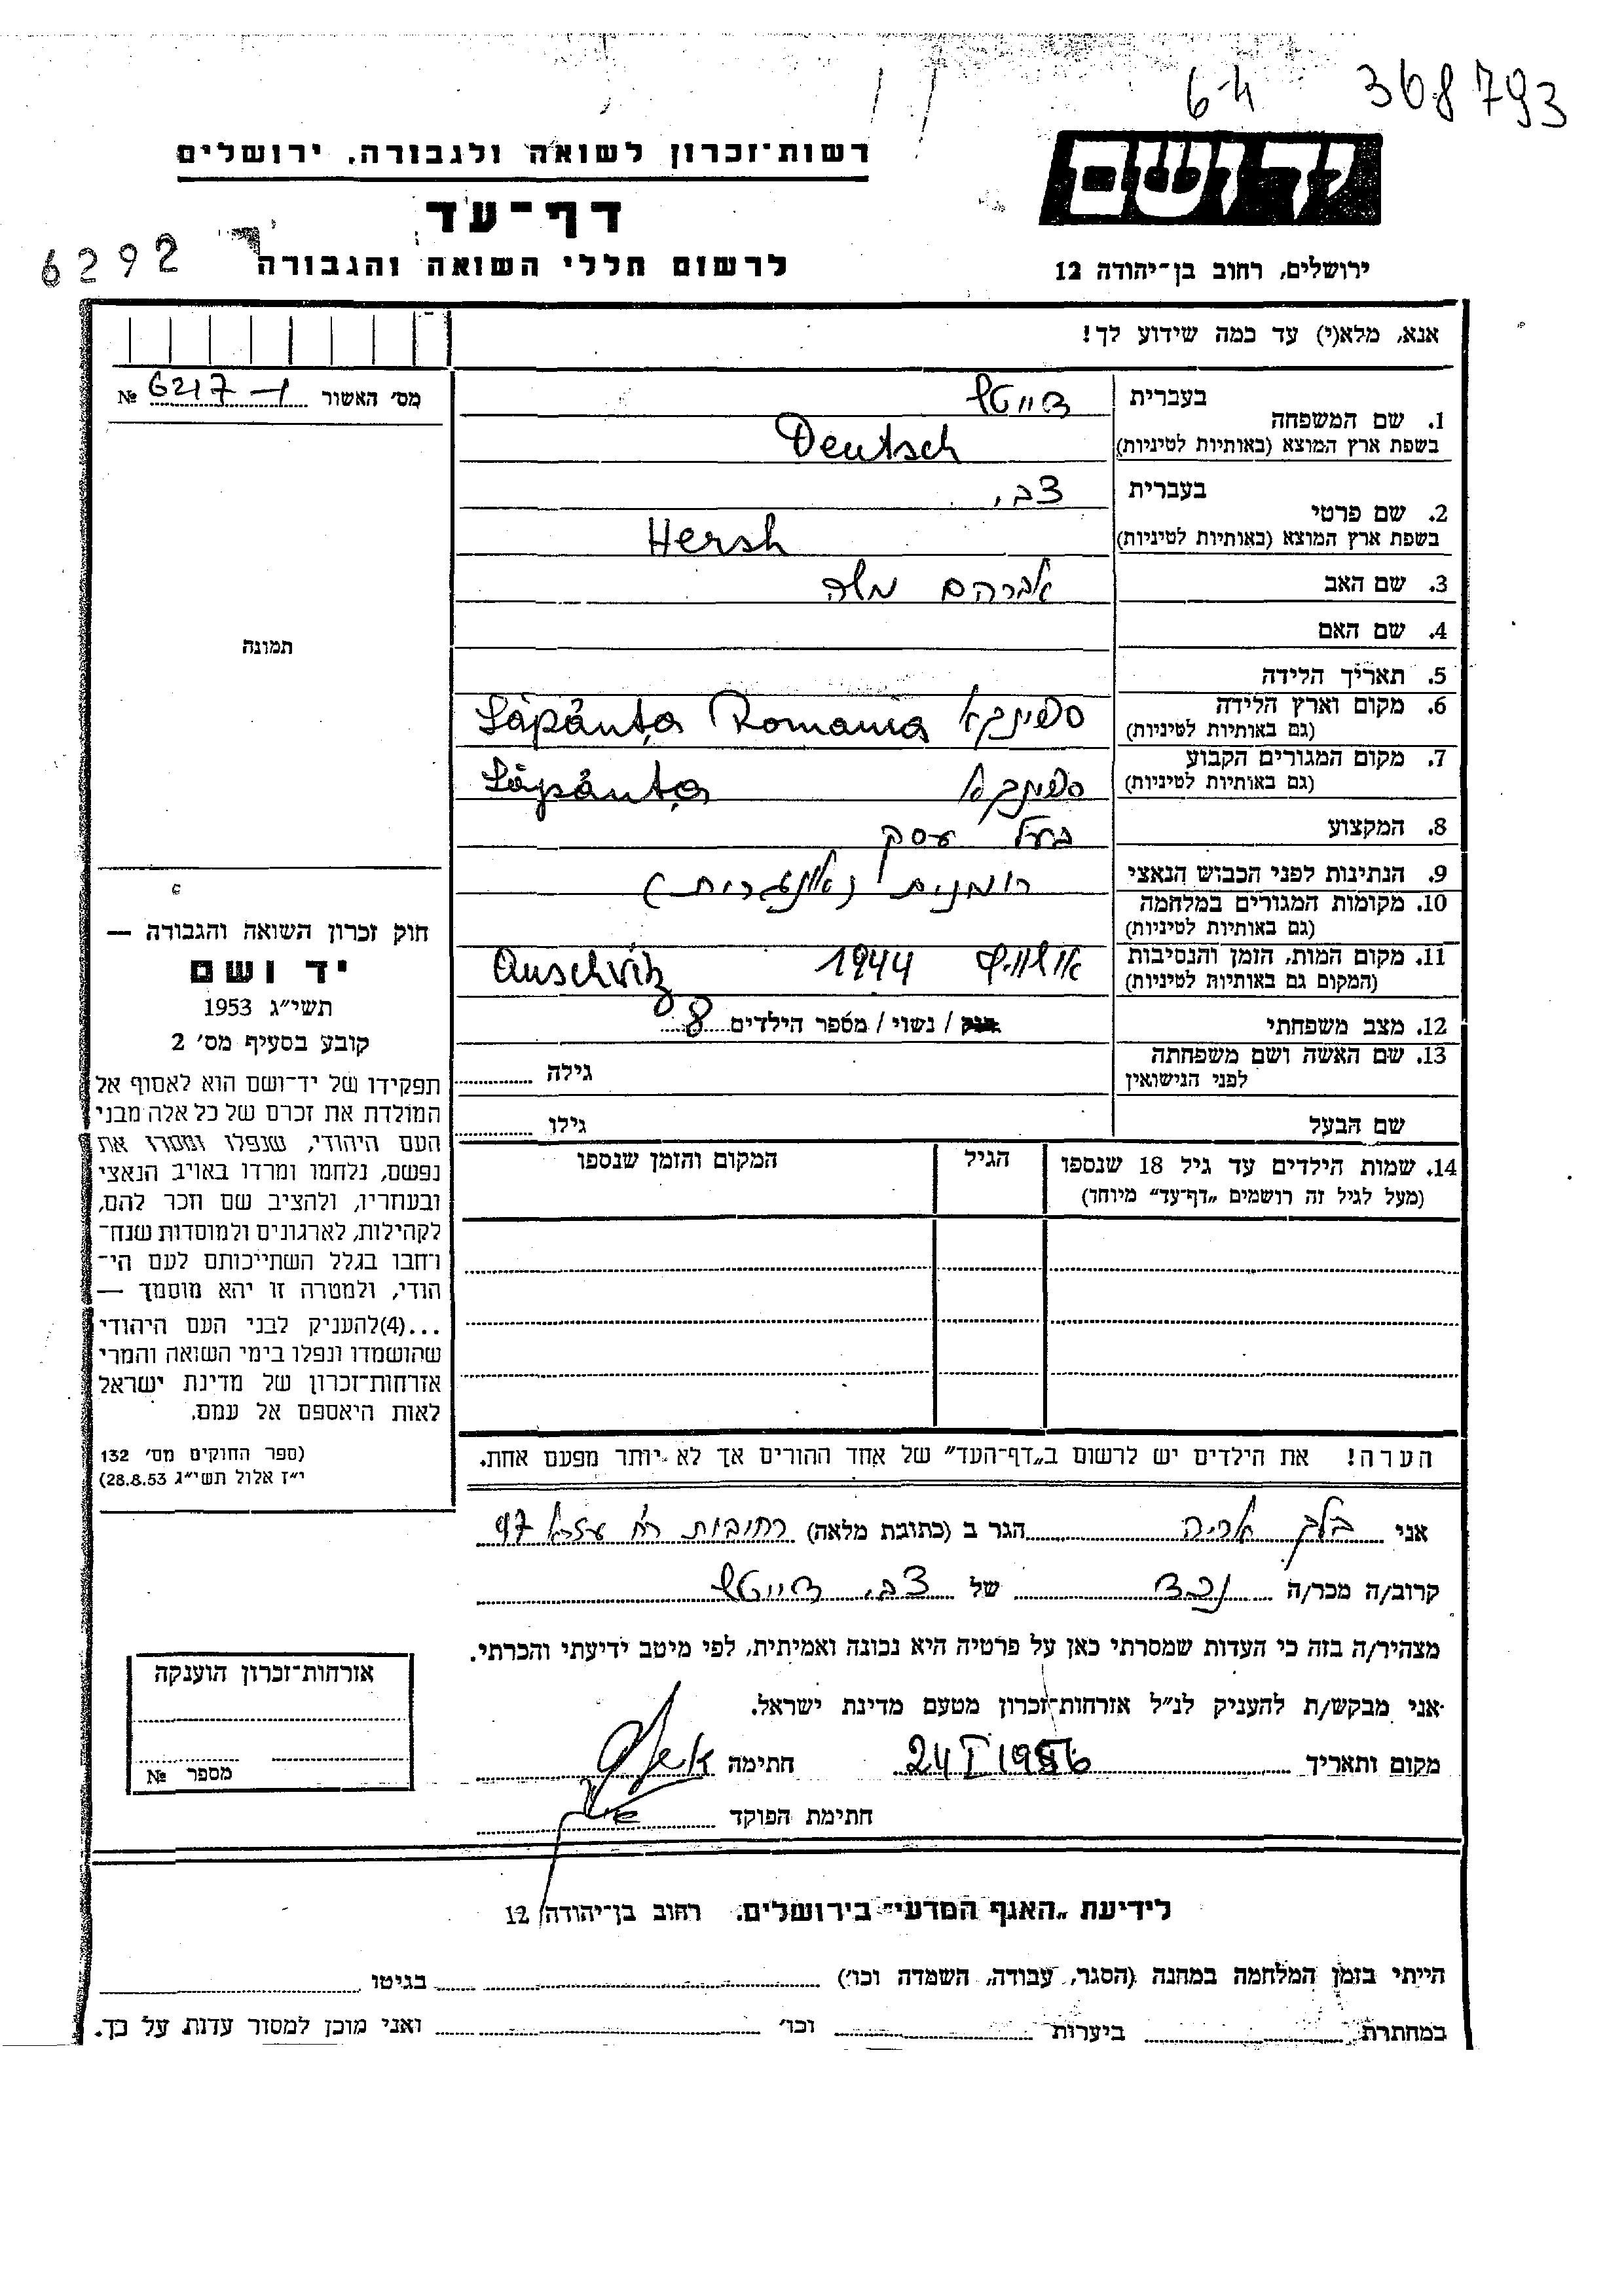 64 368793
יד ושם
רשות־זכרון לשואה ולגבורה, ירושלים
דף־עד
לרשום חללי השואה והגבורה
6292
ירושלים, רחוב בן־יהודה 12
אנא, מלא(י) עד כמה שידוע לך!
מס׳ האשור 6217-1 №
תמונה
1. שם המשפחה
בעברית דייטש
בשפת ארץ המוצא (באותיות לטיניות) Deutsch
2. שם פרטי
בעברית צבי
בשפת ארץ המוצא (באותיות לטיניות) Hersh
3. שם האב אברהם משה
4. שם האם
5. תאריך הלידה
6. מקום וארץ הלידה ספינקא Romania Săpânța
(גם באותיות לטיניות)
7. מקום המגורים הקבוע ספינקא Săpânța
(גם באותיות לטיניות)
8. המקצוע בעל עסק
9. הנתינות לפני הכבוש הנאצי רומנית (אונגרית)
10. מקומות המגורים במלחמה
(גם באותיות לטיניות)
11. מקום המות, הזמן והנסיבות אושוויץ 1944 Auschvitz
(המקום גם באותיות לטיניות)
12. מצב משפחתי רוק / נשוי / מספר הילדים 8
13. שם האשה ושם משפחתה
לפני הנישואין
גילה
שם הבעל גילו
14. שמות הילדים עד גיל 18 שנספו הגיל המקום והזמן שנספו
(מעל לגיל זה רושמים „דף־עד” מיוחד)
הערה! את הילדים יש לרשום ב„דף־העד” של אחד ההורים אך לא יותר מפעם אחת.
חוק זכרון השואה והגבורה —
יד ושם
תשי״ג 1953
קובע בסעיף מס׳ 2
תפקידו של יד־ושם הוא לאסוף אל
המולדת את זכרם של כל אלה מבני
העם היהודי, שנפלו ומסרו את
נפשם, נלחמו ומרדו באויב הנאצי
ובעוזריו, ולהציב שם וזכר להם,
לקהילות, לארגונים ולמוסדות שנח־
רחבו בגלל השתייכותם לעם הי־
הודי, ולמטרה זו יהא מוסמך —
...(4)להעניק לבני העם היהודי
שהושמדו ונפלו בימי השואה והמרי
אזרחות־זכרון של מדינת ישראל
לאות היאספם אל עמם.
(ספר החוקים מס׳ 132
י״ז אלול תשי״ג 28.8.53)
אני בלב אריה הגר ב (כתובת מלאה) רחובות רח׳ עזרא 97
קרוב/ה מכר/ה נכד של צבי דייטש
מצהיר/ה בזה כי העדות שמסרתי כאן על פרטיה היא נכונה ואמיתית, לפי מיטב ידיעתי והכרתי.
אני מבקש/ת להעניק לנ״ל אזרחות־זכרון מטעם מדינת ישראל.
מקום ותאריך 24 I 1986 חתימה
חתימת הפוקד
אזרחות־זכרון הוענקה
מספר №
לידיעת „האגף המדעי” בירושלים, רחוב בן־יהודה 12
הייתי בזמן המלחמה במחנה (הסגר, עבודה, השמדה וכו׳) בגיטו
במחתרת ביערות וכו׳ ואני מוכן למסור עדות על כך.